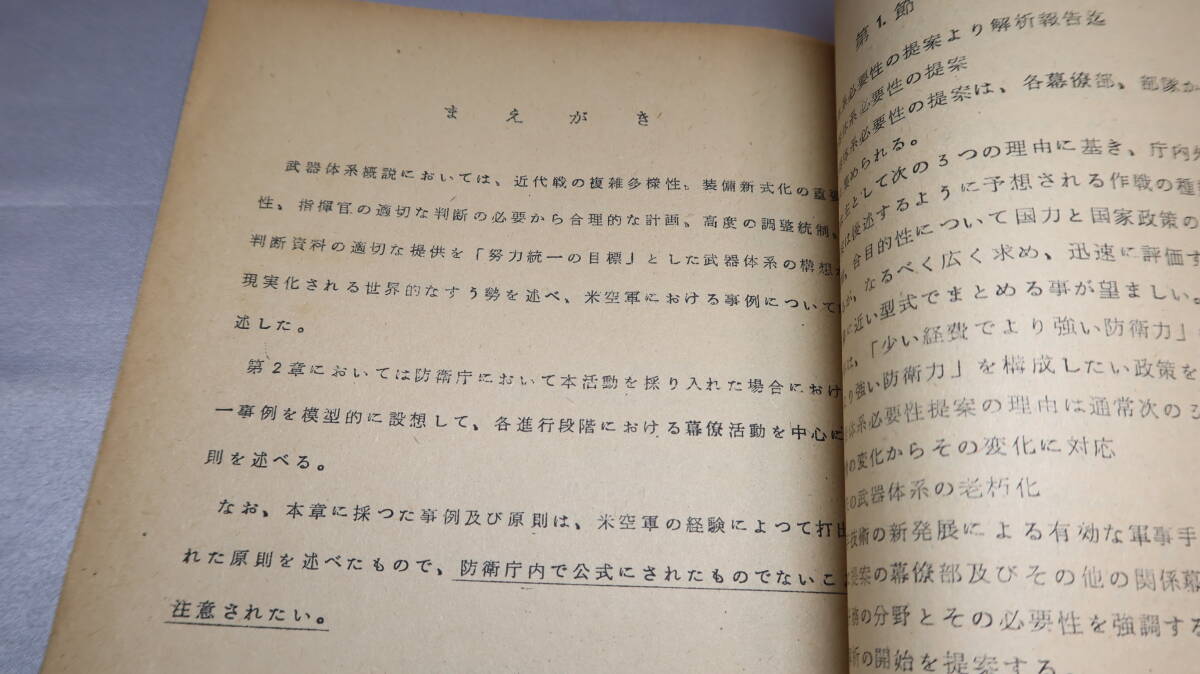 まえがき
武器体系概説においては、近代戦の複雑多様性、装備新式化の重要
性、指揮官の適切な判断の必要から合理的な計画、高度の調整統制、
判断資料の適切な提供を「努力統一の目標」とした武器体系の構想
現実化される世界的なすう勢を述べ、米空軍における事例について
述した。
第2章においては防衛庁において本活動を採り入れた場合におけ
一事例を模型的に設想して、各進行段階における幕僚活動を中心に
則を述べる。
なお、本章に採つた事例及び原則は、米空軍の経験によつて打出
れた原則を述べたもので、防衛庁内で公式にされたものでないこ
注意されたい。
第1.節
系必要性の提案より解析報告迄
体系必要性の提案
体系必要性の提案は、各幕僚部、部隊か
められる。
主として次の3つの理由に基き、庁内
は後述するように予想される作戦の種
、合目的性について国力と国家政策の
が、なるべく広く求め、迅速に評価す
に近い型式でまとめる事が望ましい。
は、「少い経費でより強い防衛力」
り強い防衛力」を構成したい政策を
体系必要性提案の理由は通常次の3
の変化からその変化に対応
の武器体系の老朽化
技術の新発展による有効な軍事手
提案の幕僚部及びその他の関係幕
務の分野とその必要性を強調する
析の開始を提案する。